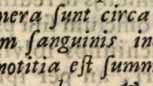 nera ſunt circa
m ſanguinis in
notitia eſt ſumm